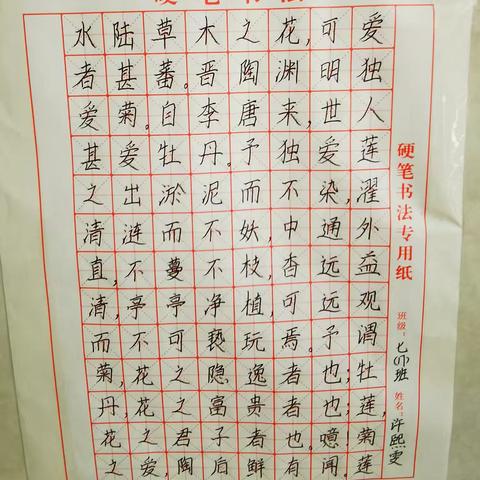 水陆草木之花,可爱
者甚蕃。晋陶渊明独
爱菊。自李唐来,世人
甚爱牡丹。予独爱莲
之出淤泥而不染,濯
清涟而不妖,中通外
直,不蔓不枝,香远益
清,亭亭净植,可远观
而不可亵玩焉。予谓
菊,花之隐逸者也;牡
丹,花之富贵者也;莲,
花之君子者也。噫!菊
之爱,陶后鲜有闻。莲
硬笔书法专用纸
班级:七班
姓名:许熙雯